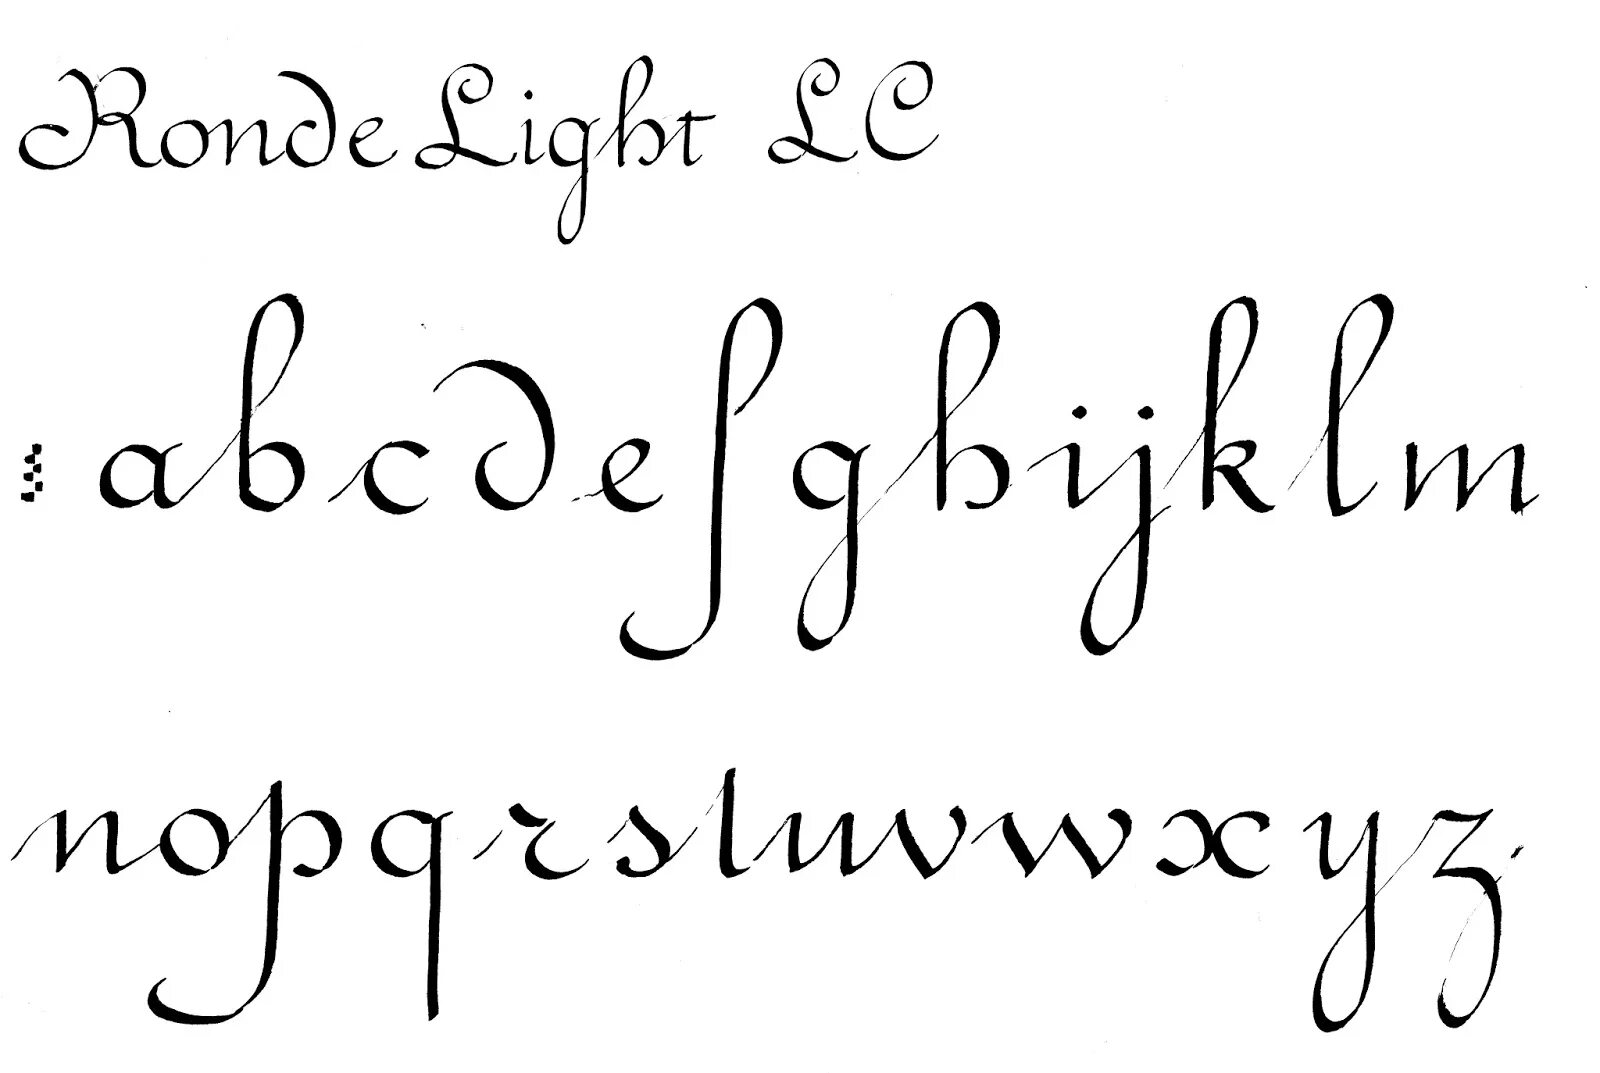 Ronde Light LC
a b c d e f g h i j k l m
n o p q r s t u v w x y z